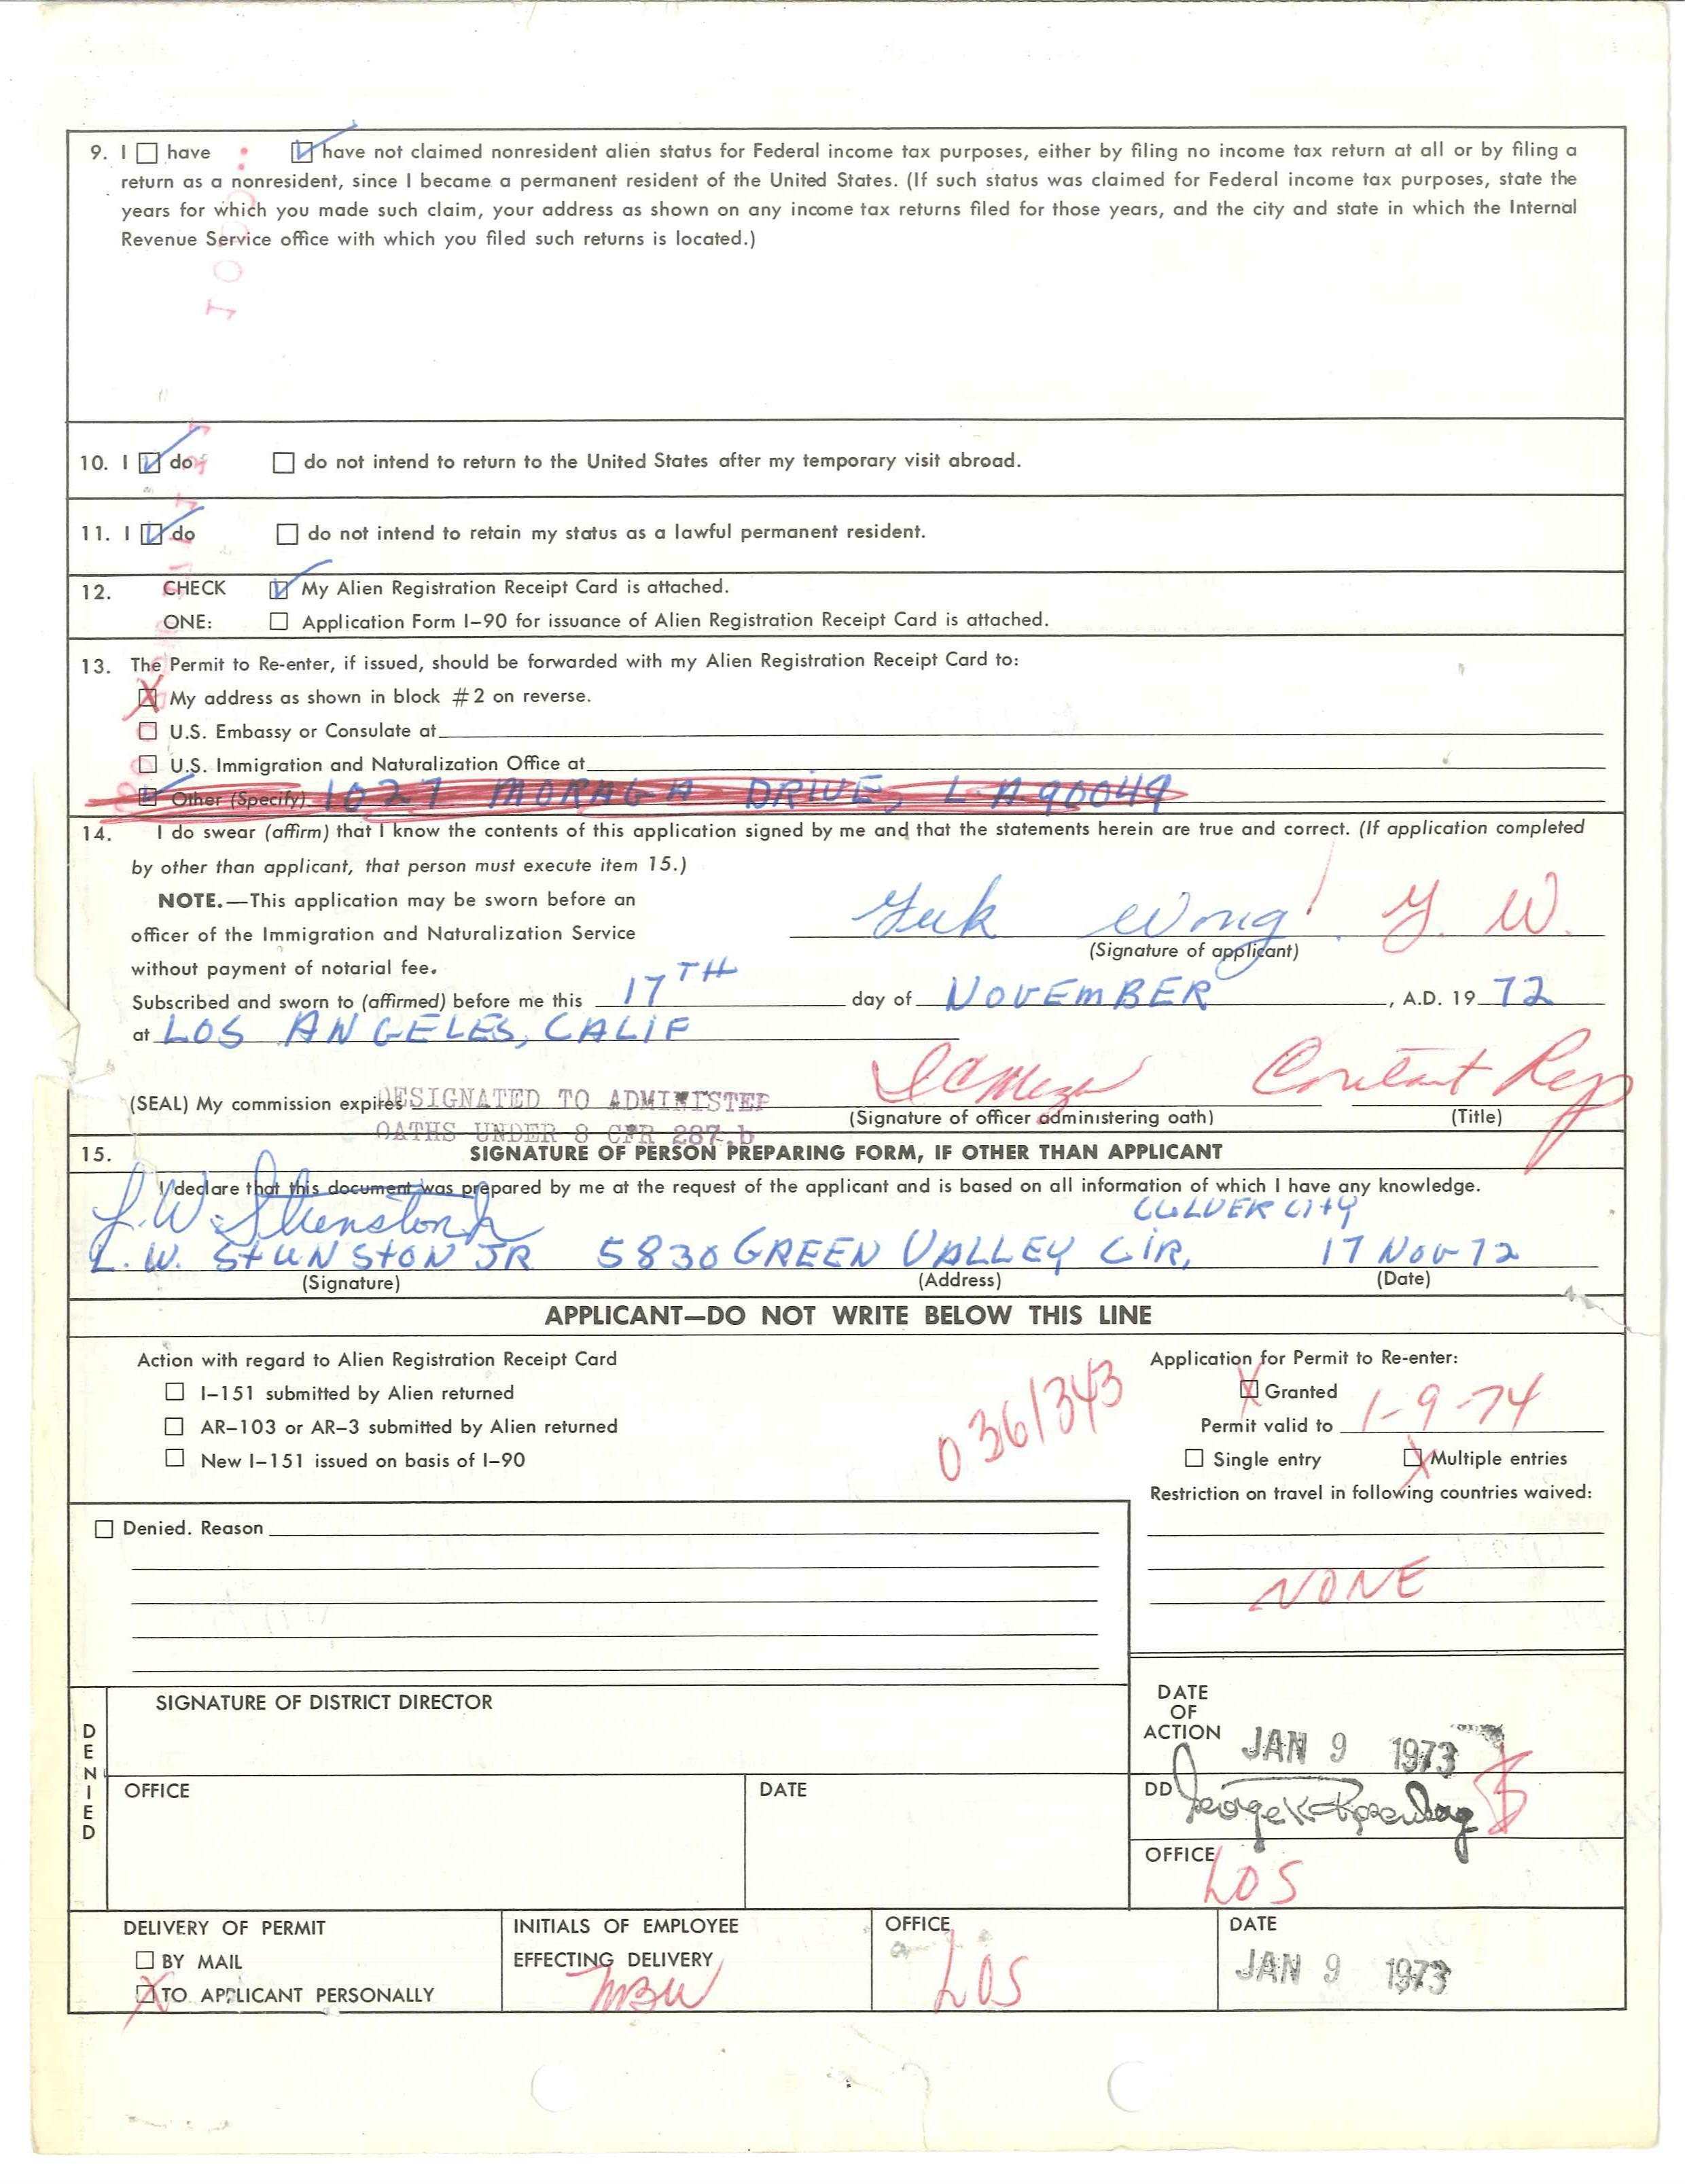 9. I have have not claimed nonresident alien status for Federal income tax purposes, either by filing no income tax return at all or by filing a
return as a nonresident, since I became a permanent resident of the United States. (If such status was claimed for Federal income tax purposes, state the
years for which you made such claim, your address as shown on any income tax returns filed for those years, and the city and state in which the Internal
Revenue Service office with which you filed such returns is located.)
10. I do do not intend to return to the United States after my temporary visit abroad.
11. I do do not intend to retain my status as a lawful permanent resident.
12. CHECK My Alien Registration Receipt Card is attached.
ONE: Application Form I-90 for issuance of Alien Registration Receipt Card is attached.
13. The Permit to Re-enter, if issued, should be forwarded with my Alien Registration Receipt Card to:
My address as shown in block #2 on reverse.
U.S. Embassy or Consulate at
U.S. Immigration and Naturalization Office at
Other (Specify) 1027 MORAGA DRIVE, L.A. 90049
14. I do swear (affirm) that I know the contents of this application signed by me and that the statements herein are true and correct. (If application completed
by other than applicant, that person must execute item 15.)
NOTE.—This application may be sworn before an
officer of the Immigration and Naturalization Service
without payment of notarial fee.
Yuk Wong Y. W.
(Signature of applicant)
Subscribed and sworn to (affirmed) before me this 17TH day of NOVEMBER, A.D. 19 72
at LOS ANGELES, CALIF
Contact Rep
(SEAL) My commission expires DESIGNATED TO ADMINISTER
(Signature of officer administering oath) (Title)
OATHS UNDER 8 CFR 287.b
15. SIGNATURE OF PERSON PREPARING FORM, IF OTHER THAN APPLICANT
I declare that this document was prepared by me at the request of the applicant and is based on all information of which I have any knowledge.
L.W. Stunston Jr CULVER CITY
L. W. STUNSTON JR 5830 GREEN VALLEY CIR, 17 Nov 72
(Signature) (Address) (Date)
APPLICANT—DO NOT WRITE BELOW THIS LINE
Action with regard to Alien Registration Receipt Card
I-151 submitted by Alien returned
AR-103 or AR-3 submitted by Alien returned
New I-151 issued on basis of I-90
0361343
Application for Permit to Re-enter:
Granted
Permit valid to 1-9-74
Single entry Multiple entries
Restriction on travel in following countries waived:
NONE
Denied. Reason
DENIED
SIGNATURE OF DISTRICT DIRECTOR
OFFICE DATE
DATE
OF
ACTION JAN 9 1973
DD George K Rosenberg
OFFICE LOS
DELIVERY OF PERMIT
BY MAIL
TO APPLICANT PERSONALLY
INITIALS OF EMPLOYEE
EFFECTING DELIVERY
MBW
OFFICE
LOS
DATE
JAN 9 1973